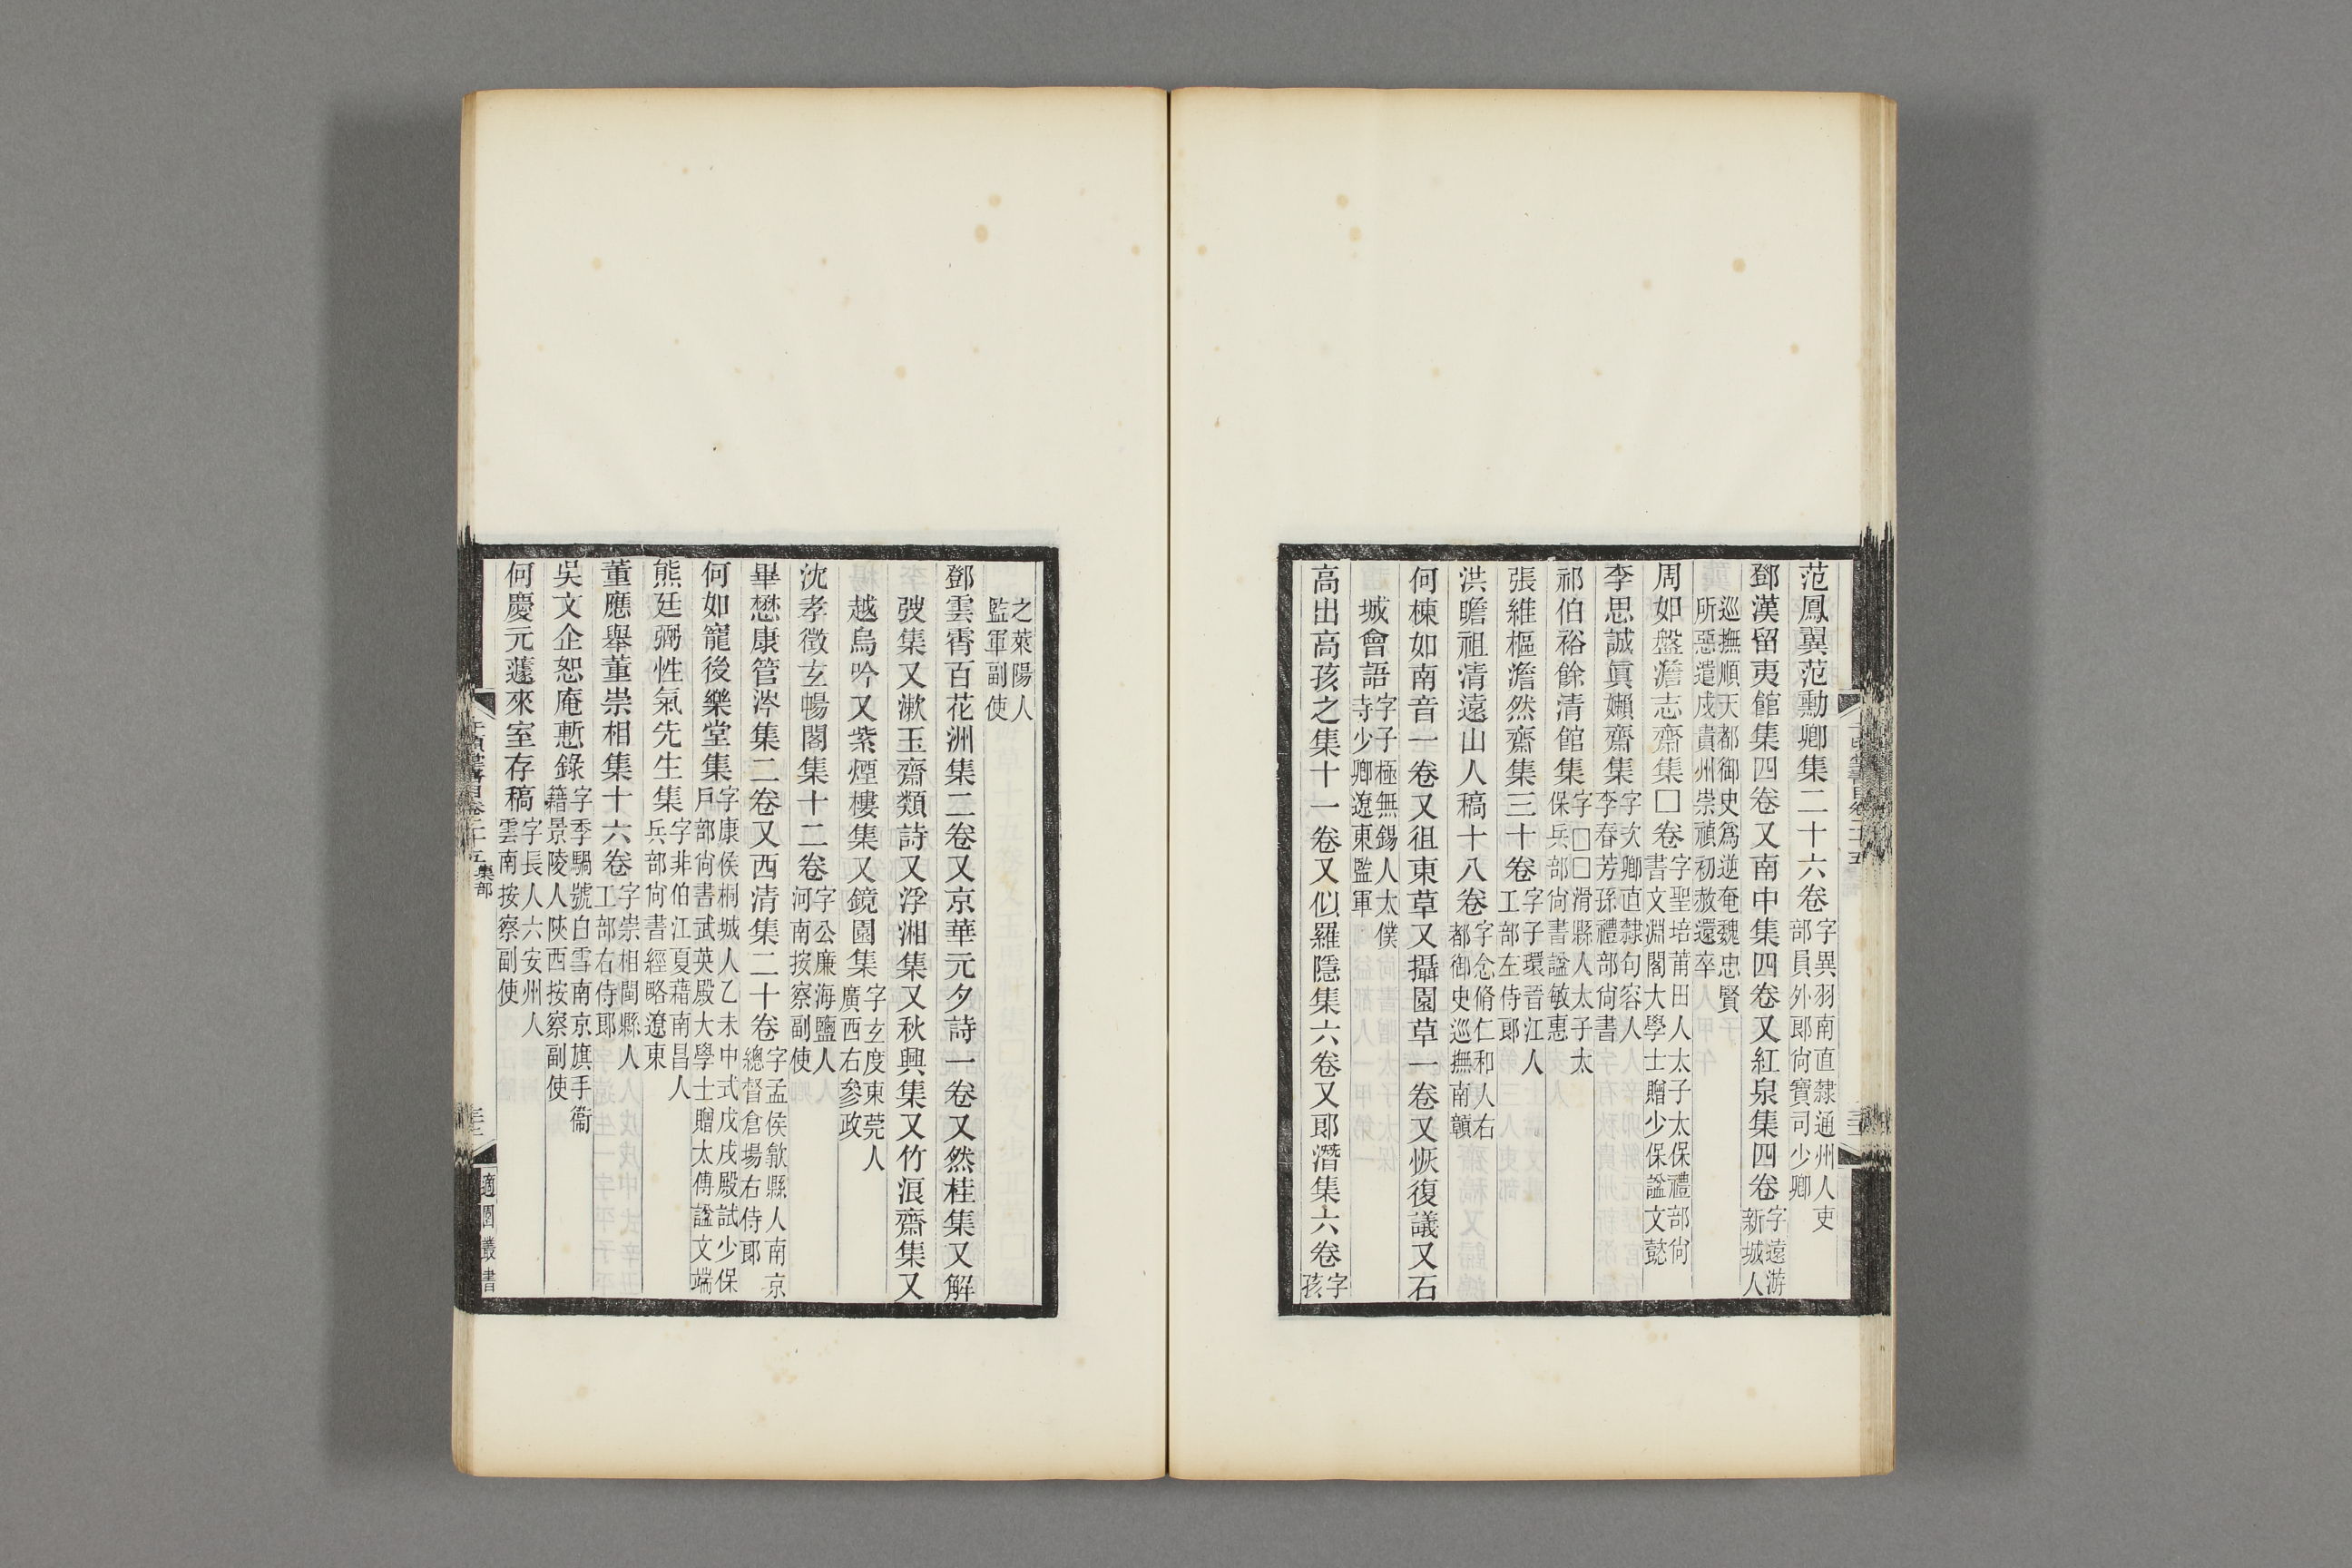 范鳳翼范勳卿集二十六卷字異羽南直隸通州人吏部員外郎尙寶司少卿
鄧漢留夷館集四卷又南中集四卷又紅泉集四卷字遠游新城人
巡撫順天都御史爲逆奄魏忠賢所惡遣戍貴州崇禎初赦還卒
周如盤澹志齋集□卷字聖培莆田人太子太保禮部尙書文淵閣大學士贈少保諡文懿
李思誠眞嬾齋集字次卿直隸句容人李春芳孫禮部尙書
祁伯裕餘清館集字□□滑縣人太子太保兵部尙書諡敏惠
張維樞澹然齋集三十卷字子環晉江人工部左侍郎
洪瞻祖清遠山人稿十八卷字念脩仁和人右都御史巡撫南贛
何棟如南音一卷又徂東草又攝園草一卷又恢復議又石
城會語字子極無錫人太僕寺少卿遼東監軍
高出高孩之集十一卷又似羅隱集六卷又郎潛集六卷字孩
之萊陽人監軍副使
鄧雲霄百花洲集二卷又京華元夕詩一卷又然桂集又解
弢集又漱玉齋類詩又浮湘集又秋興集又竹浪齋集又
越烏吟又紫煙樓集又鏡園集字玄度東莞人廣西右參政
沈孝徵玄暢閣集十二卷字公廉海鹽人河南按察副使
畢懋康管涔集二卷又西清集二十卷字孟侯歙縣人南京總督倉場右侍郎
何如寵後樂堂集字康侯桐城人乙未中式戊戌殿試少保戶部尙書武英殿大學士贈太傅諡文端
熊廷弼性氣先生集字非伯江夏藉南昌人兵部尙書經略遼東
董應舉董崇相集十六卷字崇相閩縣人工部右侍郎
吳文企恕庵慙錄字季騧號白雪南京旗手衞籍景陵人陝西按察副使
何慶元蘧來室存稿字長人六安州人雲南按察副使
集部
適園叢書